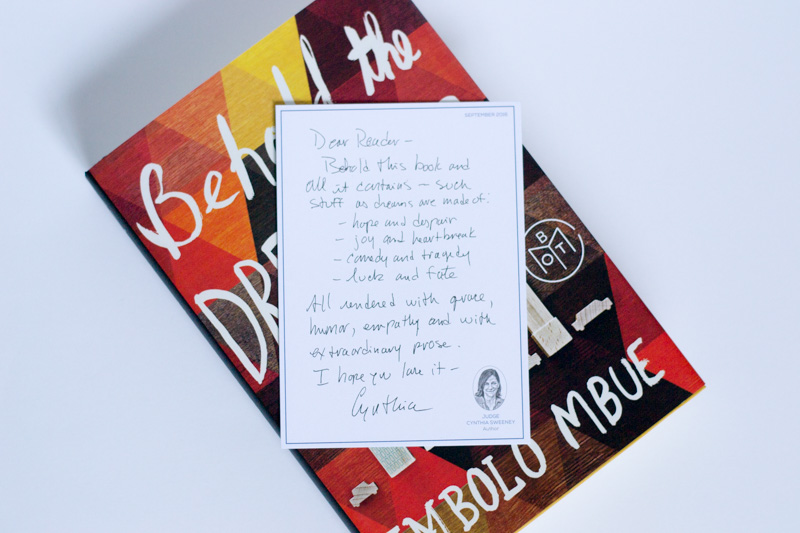 Behold the
DRE
BOTM
IMBOLO MBUE
SEPTEMBER 2016
Dear Reader –
Behold this book and
all it contains – such
stuff as dreams are made of:
– hope and despair
– joy and heartbreak
– comedy and tragedy
– luck and fate
All rendered with grace,
humor, empathy and with
extraordinary prose.
I hope you love it –
Cynthia
JUDGE
CYNTHIA SWEENEY
Author